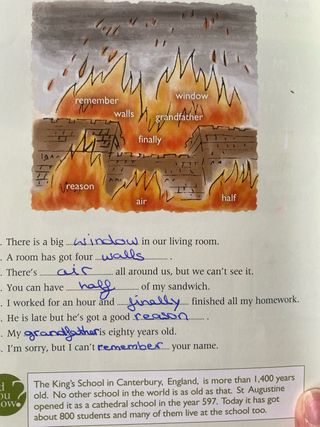 remember
window
walls
grandfather
finally
reason
air
half
. There is a big window in our living room.
. A room has got four walls .
. There's air all around us, but we can't see it.
. You can have half of my sandwich.
. I worked for an hour and finally finished all my homework.
. He is late but he's got a good reason .
. My grandfather is eighty years old.
. I'm sorry, but I can't remember your name.
d
ou
ow?
The King's School in Canterbury, England, is more than 1,400 years
old. No other school in the world is as old as that. St Augustine
opened it as a cathedral school in the year 597. Today it has got
about 800 students and many of them live at the school too.